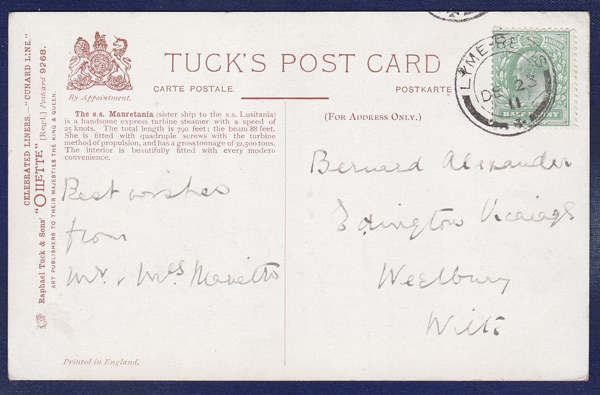 TUCK'S POST CARD
CARTE POSTALE
POSTKARTE
By Appointment.
The s.s. Mauretania (sister ship to the s.s. Lusitania)
is a handsome express turbine steamer with a speed of
25 knots. The total length is 790 feet; the beam 88 feet.
She is fitted with quadruple screws with the turbine
method of propulsion, and has a gross tonnage of 32,500 tons.
The interior is beautifully fitted with every modern
convenience.
(FOR ADDRESS ONLY.)
CELEBRATED LINERS.—"CUNARD LINE."
Raphael Tuck & Sons' "OILETTE" [Regd.] Postcard 9268.
ART PUBLISHERS TO THEIR MAJESTIES THE KING & QUEEN.
Best wishes
from
Mr. & Mrs
Bernard Alexander
Edington Vicarage
Westbury
Wilts
Printed in England.
LYME-REGIS
DE 23
11
HALF PENNY